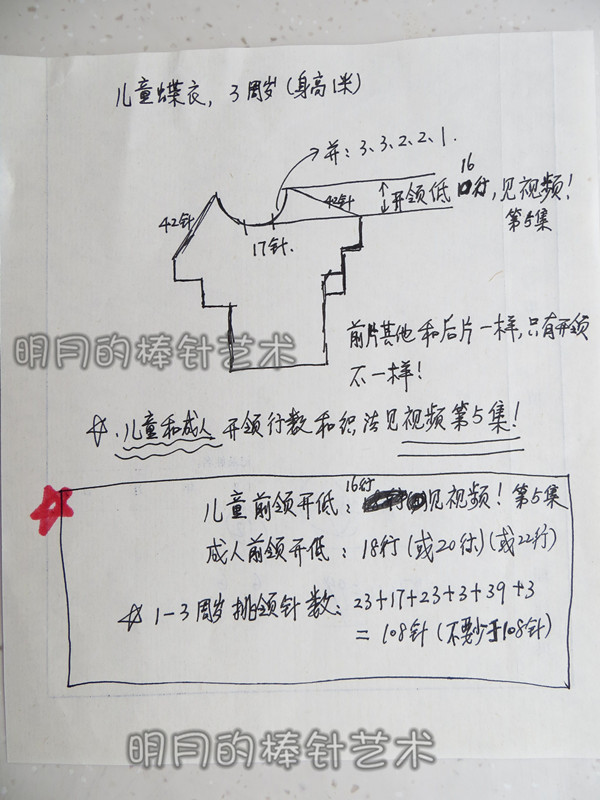 儿童蝶衣，3周岁（身高1米）
并：3、3、2、2、1.
42针
17针.
42针
开领低16行，见视频！
第5集
前片其他和后片一样，只有开领
不一样！
明月的棒针艺术
☆.儿童和成人开领行数和织法见视频第5集！
儿童前领开低：16行 见视频！第5集
成人前领开低：18行（或20行）（或22行）
☆1-3周岁挑领针数：23+17+23+3+39+3
=108针（不要少于108针）
明月的棒针艺术